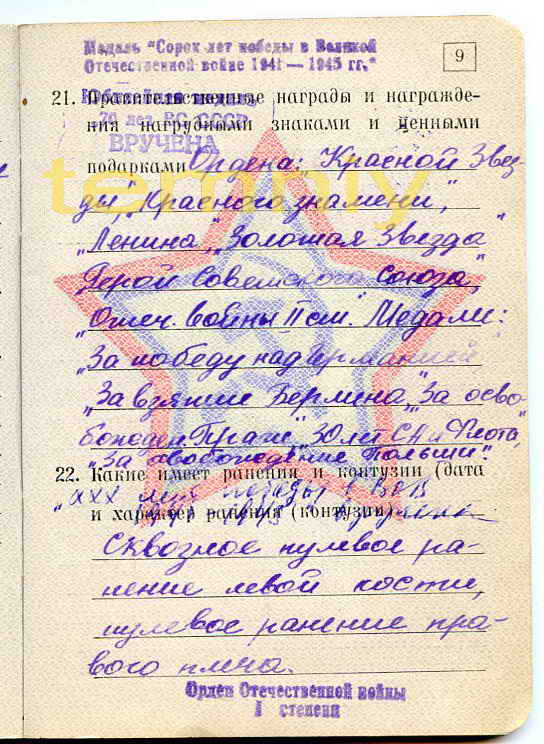 Медаль "Сорок лет победы в Великой
Отечественной войне 1941 — 1945 гг."
9
21. Правительственные награды и награжде-
Юбилейная медаль
ния нагрудными знаками и ценными
70 лет ВС СССР
ВРУЧЕНА
подарками Ордена: „Красной Звез-
temniy
ды", „Красного знамени",
„Ленина", „Золотая Звезда"
Герой Советского Союза",
„Отеч. войны II ст." Медали:
„За победу над Германией"
„За взятие Берлина", „За осво-
божден. Праги", 50 лет СА и Флота",
„За освобождение Польши".
22. Какие имеет ранения и контузии (дата
„XXX лет победы в ВОВ
и характер ранения (контузии)
Сквозное пулевое ра-
нение левой кости,
пулевое ранение пра-
вого плеча.
Орден Отечественной войны
I степени